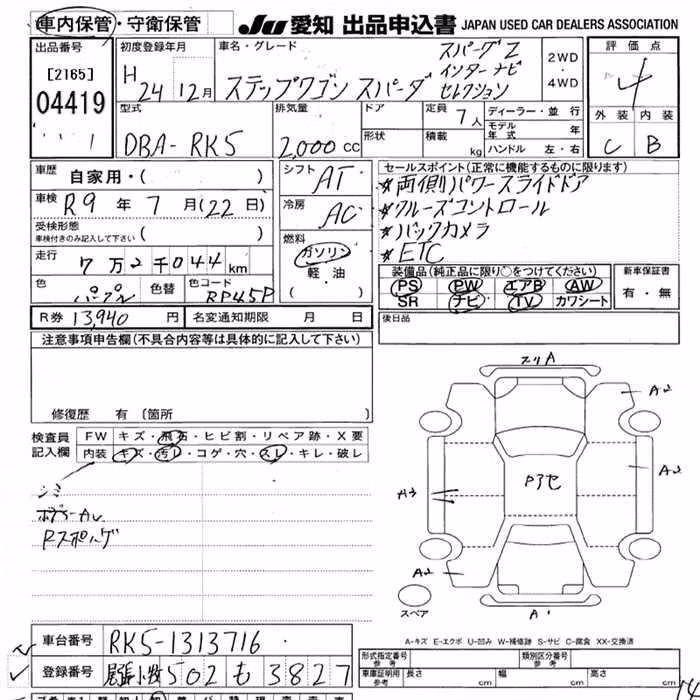 車内保管・守衛保管
JU 愛知 出品申込書 JAPAN USED CAR DEALERS ASSOCIATION
出品番号
[2165]
04419
1
初度登録年月
H 24 12月
車名・グレード
ステップワゴン スパーダ
スパーダZ
インターナビ
セレクション
2WD
・
4WD
評価点
4
外装 内装
C B
型式
DBA-RK5
排気量
2,000 cc
ドア
形状
定員 7人
積載 kg
ディーラー・並行
モデル年式 年
ハンドル 左・右
車歴
自家用・( )
車検
R9 年 7 月(22日)
受検形態
車検付きのみ記入して下さい ( )
走行
7万2千044 km
色
パープル
色替
色コード
RP45P
シフト
AT
冷房
AC
燃料
ガソリン
軽・油
( )
セールスポイント(正常に機能するものに限ります)
★両側パワースライドドア
★クルーズコントロール
★バックカメラ
★ETC
装備品(純正品に限り○をつけてください)
PS PW エアB AW
SR ナビ TV カワシート
新車保証書
有・無
R券 13,940 円 名変通知期限 月 日
後日品
注意事項申告欄(不具合内容等は具体的に記入して下さい)
修復歴 有 〔箇所
検査員
記入欄
FW キズ・飛石・ヒビ割・リペア跡・X要
内装 キズ・汚レ・コゲ・穴・スレ・キレ・破レ
シミ
スリA
A2
A2
A3
Pアセ
A2
A1
スペア
A-キズ E-エクボ U-凹み W-補修跡 S-サビ C-腐食 XX-交換済
車台番号 RK5-1313716
登録番号 尾張小牧 502 も 3827
形式指定番号
参考
類別区分番号
参考
車庫証明用
参考
長さ cm 幅 cm 高さ cm